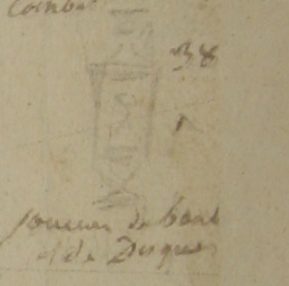 Combat
38
joueur de boul
et de Disques